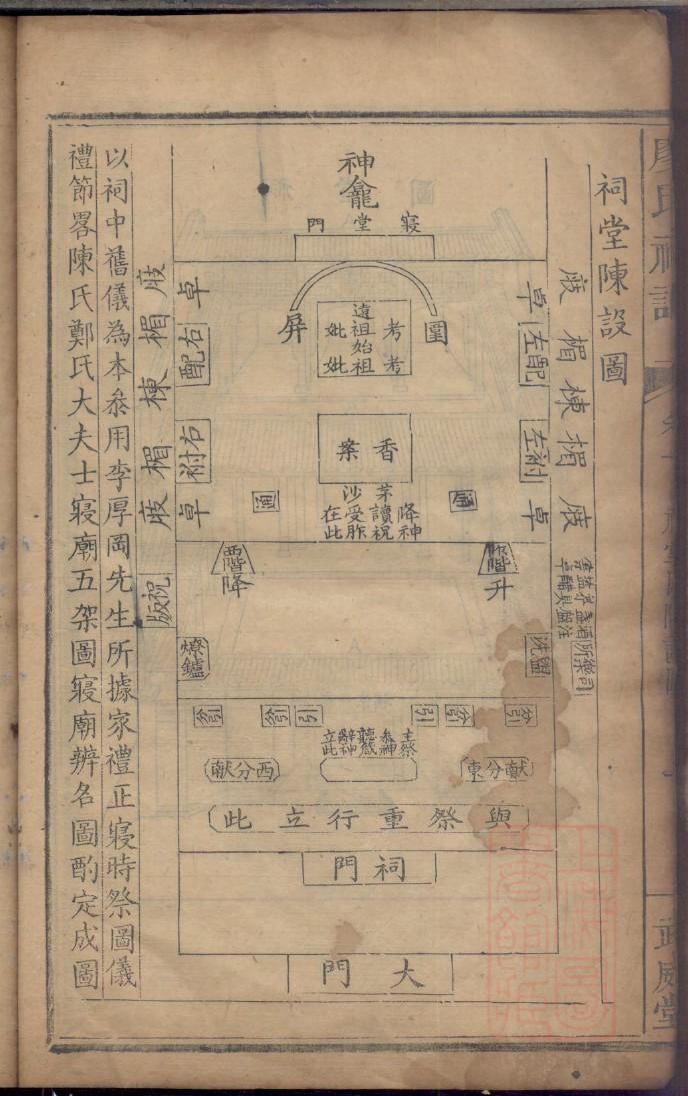 祠堂陳設圖
神龕
寢堂門
圍
屏
遠祖
考
妣
始祖
考
妣
香案
茅沙在此
讀祝受胙
降神
酒
卓
左配
左祔
卓
卓
右配
右祔
卓
庪
楣
棟
楣
庪
庪
楣
棟
楣
庪
階
升
西階
降
祝版
盥洗
燎鑪
司樂所
引
引
引
引
主祭參神聽嘏辭神立此
東分献
西分献
與祭重行立此
祠門
大門
以祠中舊儀為本叅用李厚岡先生所據家禮正寢時祭圖儀
禮節畧陳氏鄭氏大夫士寢廟五架圖寢廟辨名圖酌定成圖
武威堂